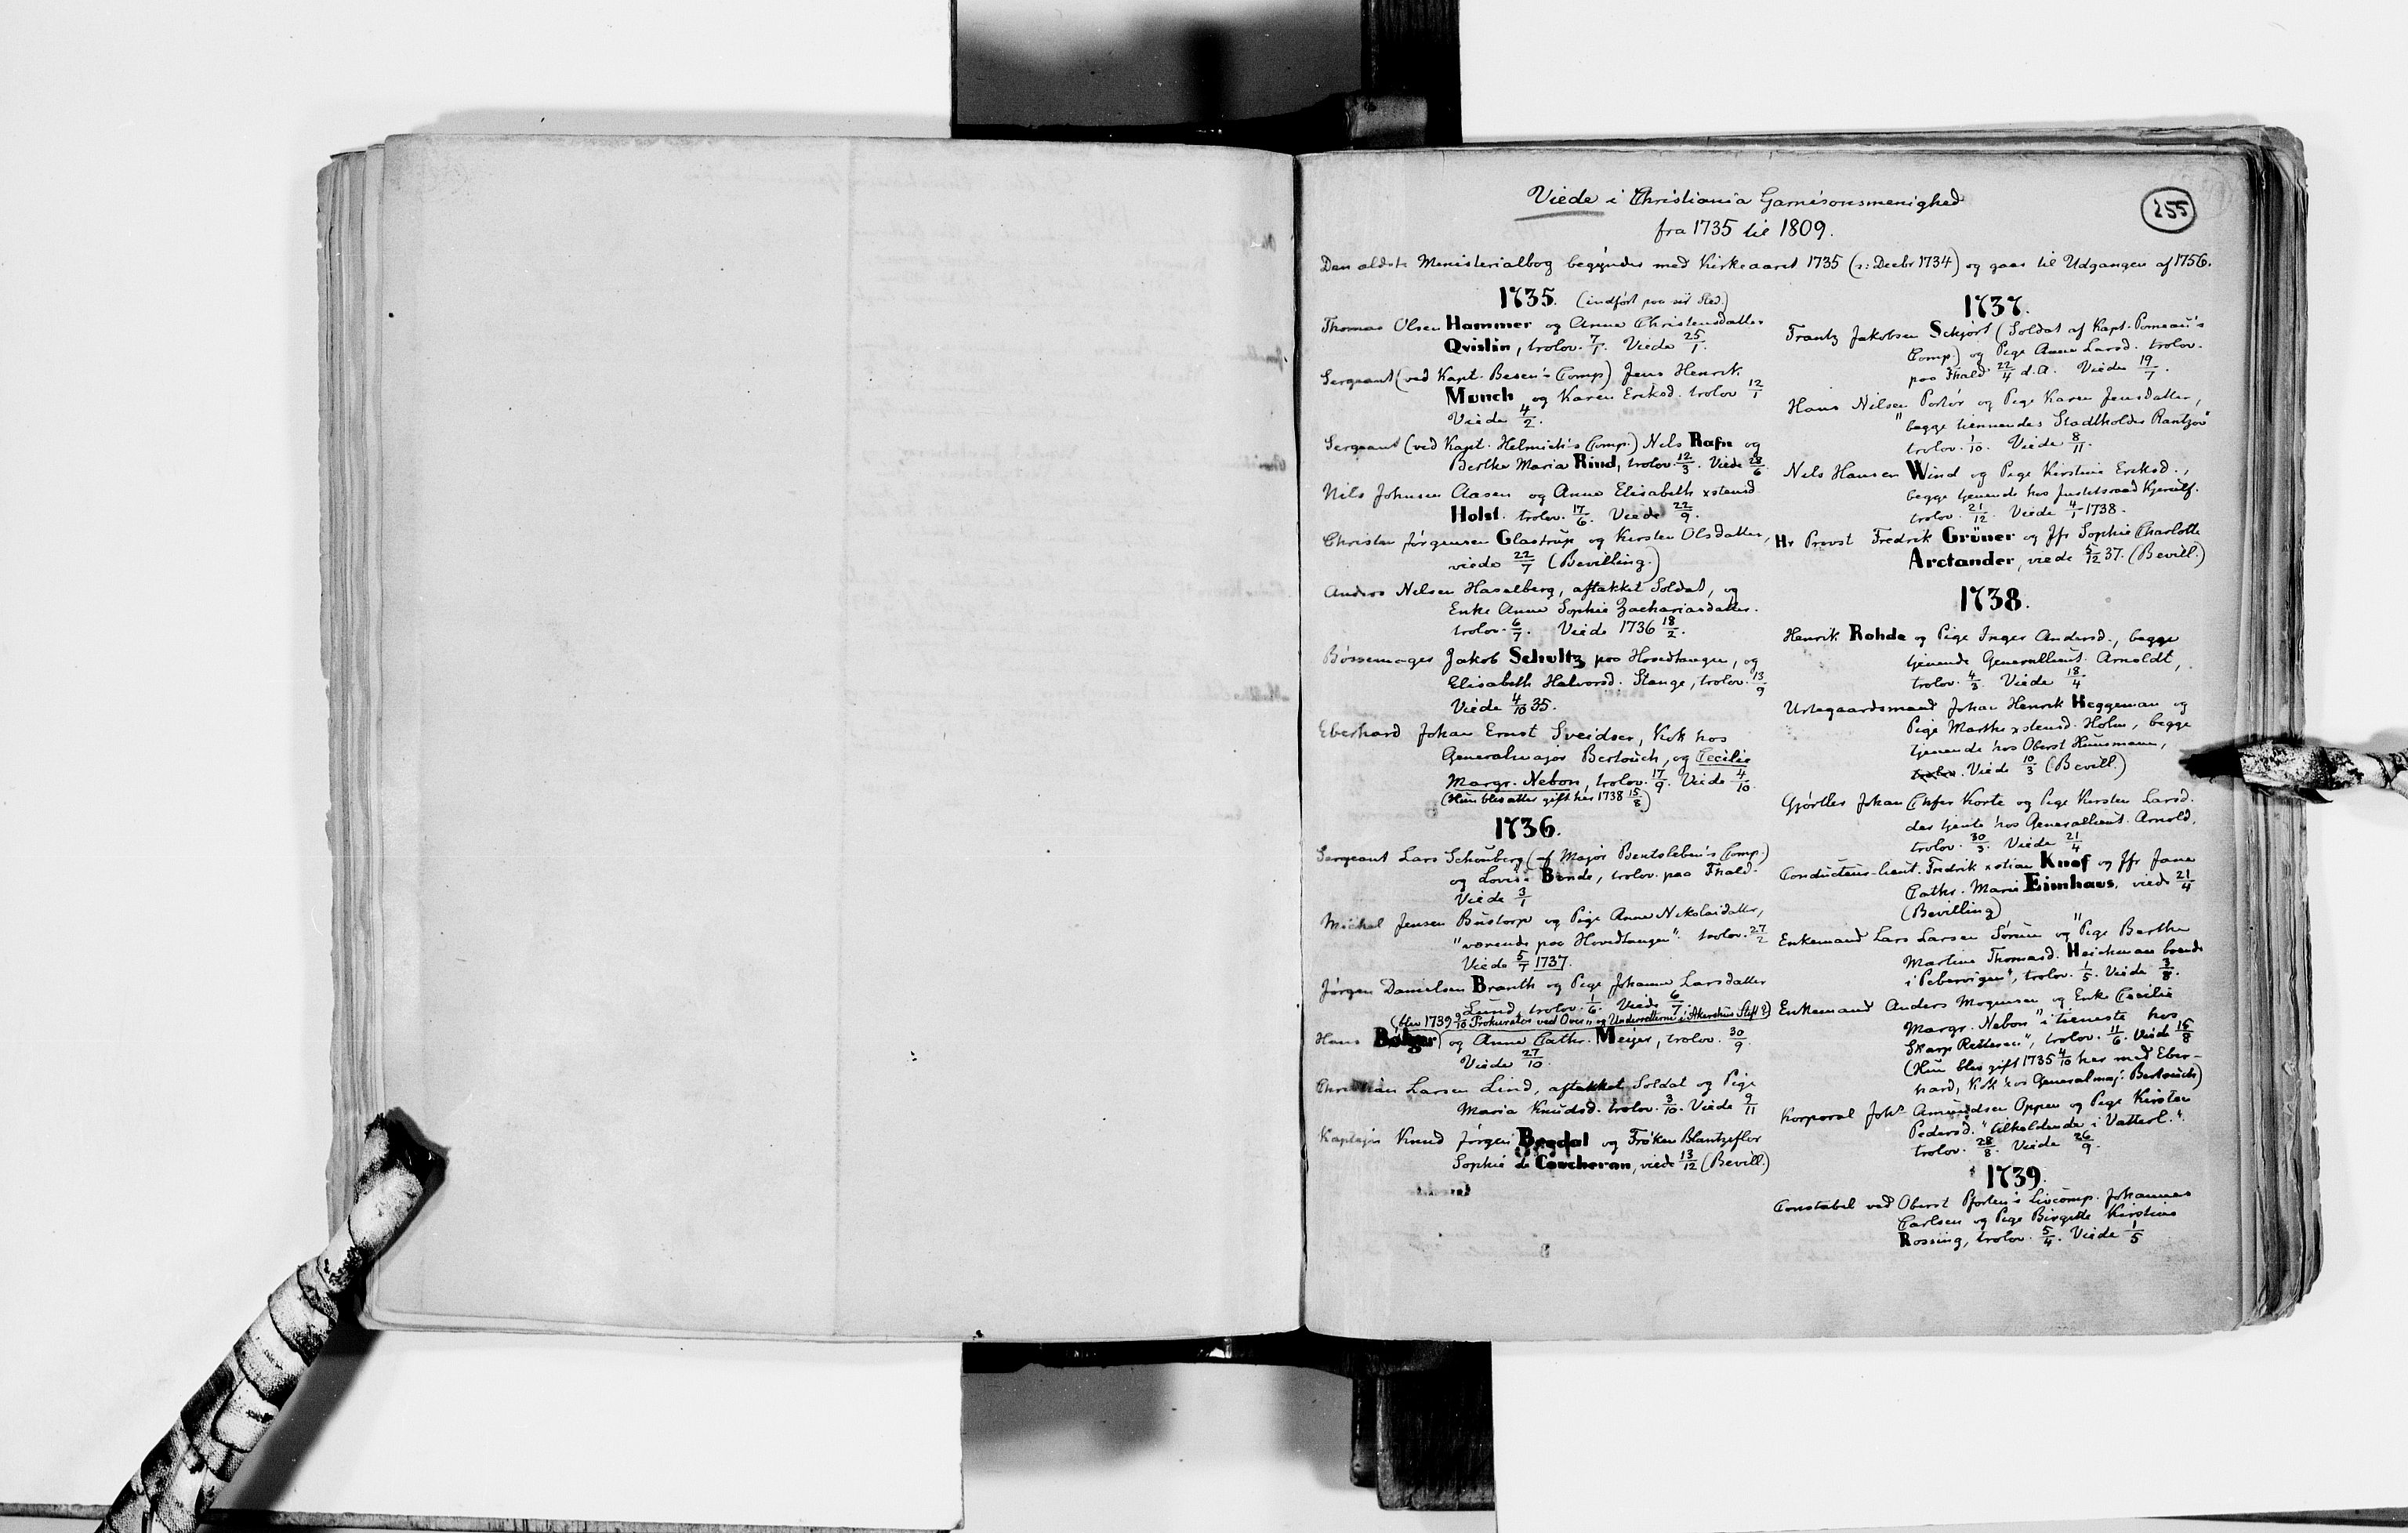 255
Viede i Christiania Garnisonsmenighed
fra 1735 til 1809.
Den ældste Ministerialbog begynder med Kirkeaaret 1735 (ɔ: Decbr 1734) og gaar til Udgangen af 1756.
1735. (indført paa sit Sted.)
Thomas Olsen Hammer og Anne Christensdatter
Qvislin, trolov. 7/1. Viede 25/1.
Sergeant (ved Kapt. Besen's Comp) Jens Henrik
Munch og Karen Eriksd. trolov 12/1
Viede 4/2.
Sergeant (ved Kapt. Helmich's Comp.) Nels Rafn og
Berthe Maria Rind, trolov. 12/3. Viede 28/6.
Nils Johnsen Aasen og Anne Elisabeth xstensd.
Holst. trolov. 17/6. Viede 22/9.
Christen Jørgensen Glastrup og Kirsten Olsdatter,
viede 22/7 (Bevilling.)
Anders Nelsen Haselberg, aftakket Soldat, og
Enke Anne Sophie Zachariasdatter.
trolov. 6/7. Viede 1736 18/2.
Bøssemager Jakob Schultz paa Hovedtangen, og
Elisabeth Halvorsd. Stange, trolov. 13/9
Viede 4/10 35.
Eberhard Johan Ernst Sveidser, Kok hos
Generalmajor Bertouch, og Cecilie
Margr. Nebon, trolov. 17/9. Viede 4/10.
(Hun blev atter gift her 1738 15/8)
1736.
Sergeant Lars Schouberg (af Major Bentsleben's Comp.)
og Lovise Bonde, trolov. paa Fhald.
Viede 3/1
Michel Jensen Bustorp og Pige Anne Nikolaidatter,
"værende paa Hovedtangen". trolov. 27/2
Viede 5/7 1737.
Jørgen Danielsen Branth og Pige Johanne Larsdatter
Lund, trolov. 1/6. Viede 6/7
(blev 1739 9/10 Prokurator ved Over- og Underretterne i Akershus Stift?)
Hans Bølger) og Anne Cathr. Meijer, trolov. 30/9.
Viede 27/10.
Christian Larsen Lind, aftakket Soldat og Pige
Maria Knudsd. trolov. 3/10. Viede 9/11
Kaptejn Knud Jørgen Begdal og Frøken Blantzeflor
Sophie de Coucheron, viede 13/12 (Bevill.)
1737.
Frantz Jakobsen Schjørt (Soldat af Kapt. Pomeau's
Comp.) og Pige Anne Larsd. trolov.
paa Fhald 22/4 d.A. Viede 19/7.
Hans Nilsen Portør og Pige Karen Jensdatter,
"begge tiennendes Stadtholder Rantzov"
trolov. 1/10. Viede 8/11.
Nels Hansen Wind og Pige Kirstine Eriksd.,
begge tjenende hos Justitsraad Kjerulf.
trolov. 21/12. Viede 4/1 1738.
Hr Provst Fredrik Grüner og Jfr Sophie Charlotte
Arctander, viede 5/12 37. (Bevill.)
1738.
Henrik Rohde og Pige Inger Andersd., begge
tjenende Generallieut. Arnoldt,
trolov. 4/3. Viede 18/4
Urtegaardsmand Johan Henrik Heggeman og
Pige Marthe xstensd. Holm, begge
tjenende hos Oberst Hunsmann,
trolov. Viede 10/3 (Bevill.)
Gjørtler Johan Chfer Korte og Pige Kirsten Larsd.
der tjente hos Generallieut. Arnold,
trolov. 30/3. Viede 21/4
Conducteur-lieut. Fredrik xstian Knof og Jfr Jane
Cathr. Marie Eimhaus, viede 21/4
(Bevilling)
Enkemand Lars Larsen Sørum og "Pige Berthe
Martine Thomasd. Heichman boende
i Pebervigen", trolov. 1/5. Viede 3/8.
Enkemand Anders Mogensen og Enke Cecilie
Margr. Nebon "i tieneste hos
Skarp Retteren", trolov. 11/6. Viede 15/8
(Hun blev gift 1735 4/10 her med Eber-
hard, Kok hos Generalmaj. Bertouch)
Korporal Johs Amundsen Oppen og Pige Kirsten
Pedersd. "tilholdende i Vatterl."
trolov. 28/8. Viede 26/9.
1739.
Constabel ved Oberst Pforten's Livcomp. Johannes
Carlsen og Pige Birgitte Kirstine
Rossing, trolov. 5/4. Viede 1/5